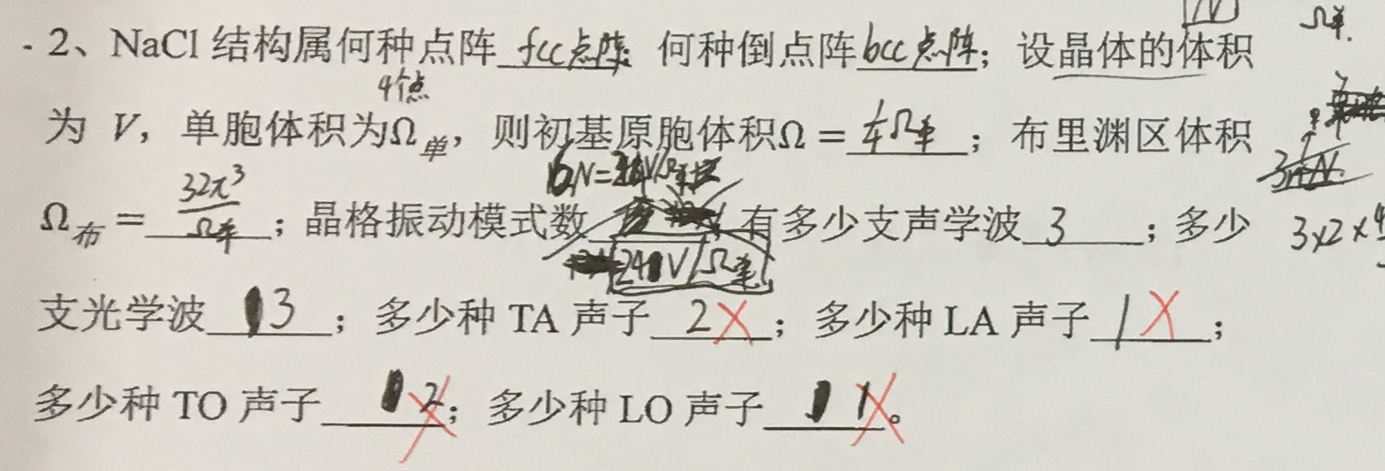 2、NaCl 结构属何种点阵 fcc点阵; 何种倒点阵 bcc点阵; 设晶体的体积 Ω单.
4个点
为 V, 单胞体积为Ω单, 则初基原胞体积Ω= 1/4 Ω单 ; 布里渊区体积
6N=24V/Ω单
Ω布= 32π³/Ω单 ; 晶格振动模式数 24V/Ω单 有多少支声学波 3 ; 多少 3×2×4
支光学波 3 ; 多少种 TA 声子 2 ; 多少种 LA 声子 1 ;
多少种 TO 声子 2 ; 多少种 LO 声子 1 。